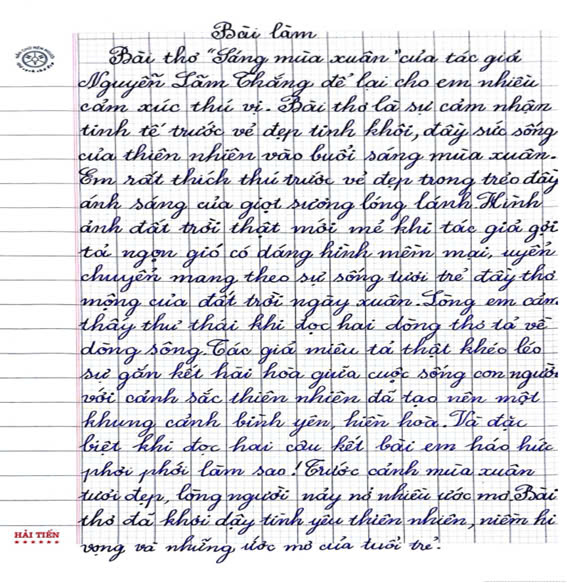 Bài làm
Bài thơ "Sáng mùa xuân" của tác giả
Nguyễn Lãm Thắng để lại cho em nhiều
cảm xúc thú vị. Bài thơ là sự cảm nhận
tinh tế trước vẻ đẹp tinh khôi, đầy sức sống
của thiên nhiên vào buổi sáng mùa xuân.
Em rất thích thú trước vẻ đẹp trong trẻo đầy
ánh sáng của giọt sương lóng lánh. Hình
ảnh đất trời thật mới mẻ khi tác giả gợi
tả ngọn gió có dáng hình mềm mại, uyển
chuyển mang theo sự sống tươi trẻ đầy thơ
mộng của đất trời ngày xuân. Lòng em cảm
thấy thư thái khi đọc hai dòng thơ tả về
dòng sông. Tác giả miêu tả thật khéo léo
sự gắn kết hài hòa giữa cuộc sống con người
với cảnh sắc thiên nhiên đã tạo nên một
khung cảnh bình yên, hiền hoà. Và đặc
biệt khi đọc hai câu kết bài em háo hức
phơi phới làm sao! Trước cảnh mùa xuân
tươi đẹp, lòng người nảy nở nhiều ước mơ. Bài
thơ đã khơi dậy tình yêu thiên nhiên, niềm hi
HẢI TIẾN
vọng và những ước mơ của tuổi trẻ.